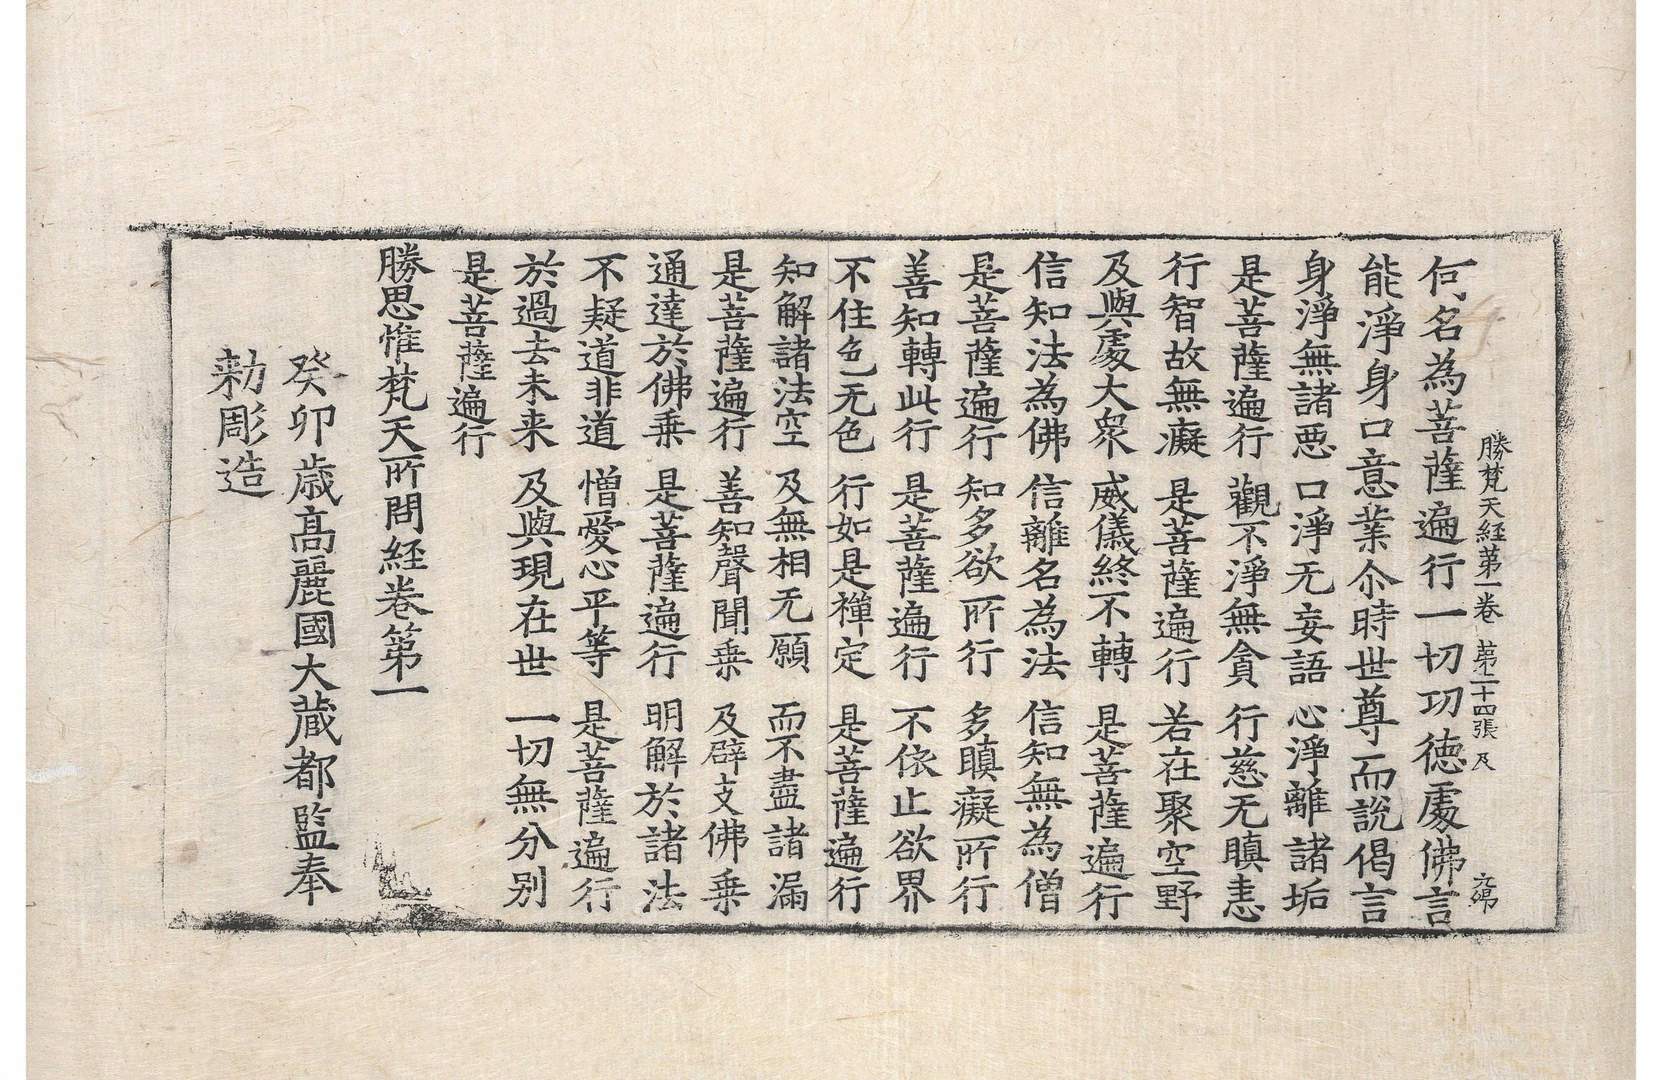 勝梵天經第一卷 第二十四張 及
何名為菩薩遍行一切功德處佛言
能淨身口意業尒時世尊而說偈言
身淨無諸惡 口淨无妄語 心淨離諸垢
是菩薩遍行 觀不淨無貪 行慈无瞋恚
行智故無癡 是菩薩遍行 若在聚空野
及與處大衆 威儀終不轉 是菩薩遍行
信知法為佛 信離名為法 信知無為僧
是菩薩遍行 知多欲所行 多瞋癡所行
善知轉此行 是菩薩遍行 不依止欲界
不住色无色 行如是禪定 是菩薩遍行
知解諸法空 及無相无願 而不盡諸漏
是菩薩遍行 善知聲聞乗 及辟支佛乗
通達於佛乗 是菩薩遍行 明解於諸法
不疑道非道 憎愛心平等 是菩薩遍行
於過去未来 及與現在世 一切無分別
是菩薩遍行
勝思惟梵天所問經卷第一
癸卯歳髙麗國大藏都監奉
勑彫造